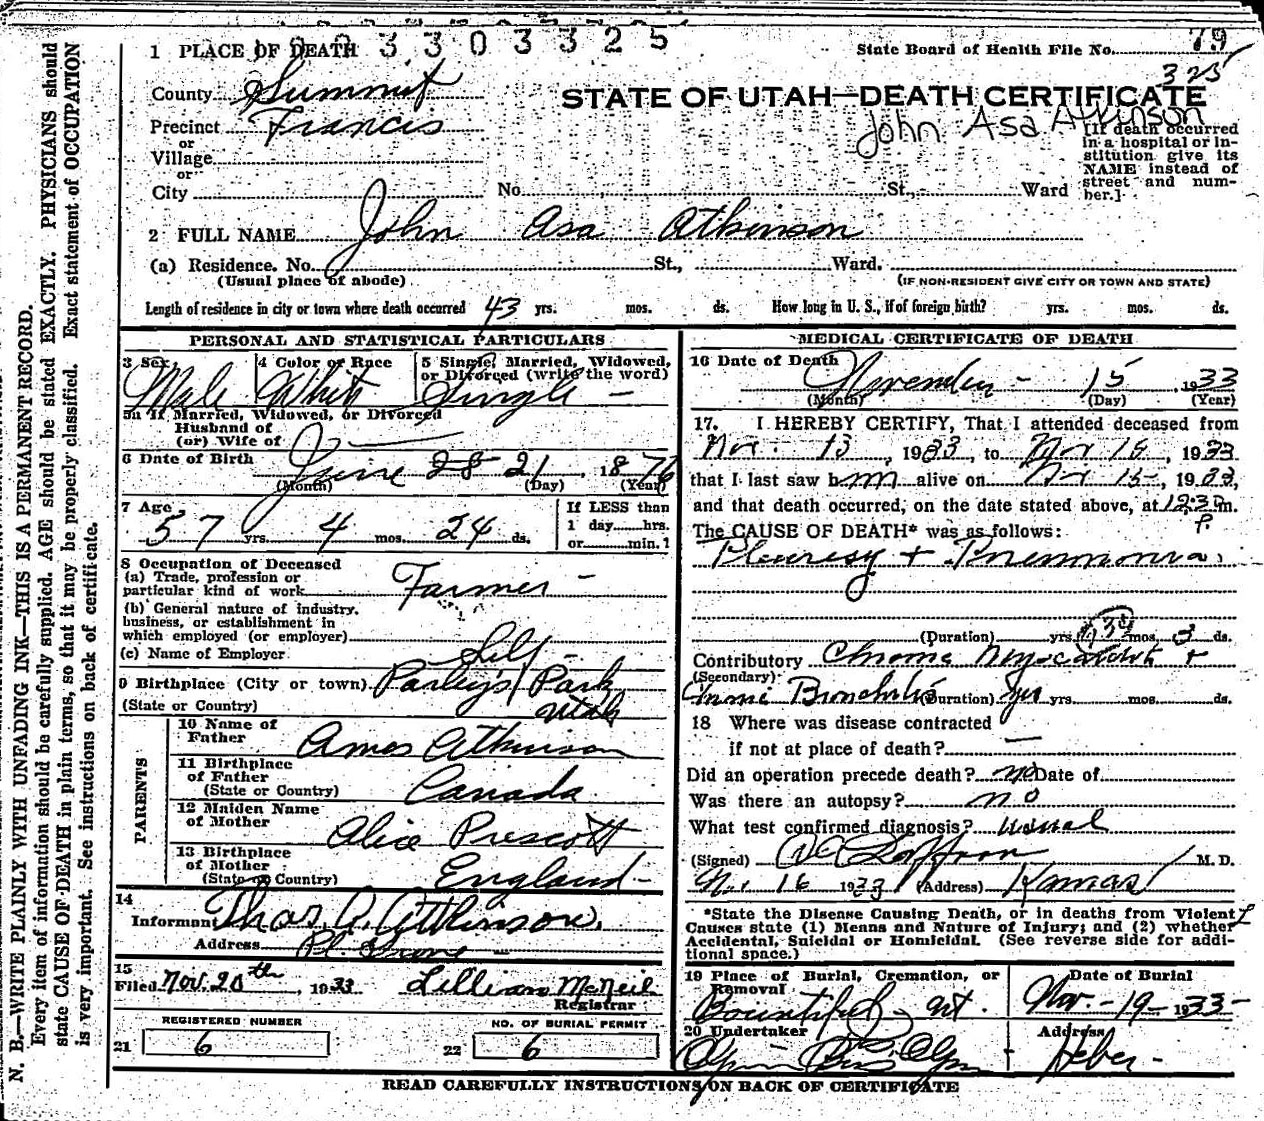 1 PLACE OF DEATH
3 3 0 3 3 2 5
State Board of Health File No. 79
325
County Summit
STATE OF UTAH—DEATH CERTIFICATE
John Asa Atkinson
Precinct Francis
or
Village
or
City No. St., Ward
[If death occurred in a hospital or institution give its NAME instead of street and number.]
2 FULL NAME John Asa Atkinson
(a) Residence. No. St., Ward.
(Usual place of abode) (IF NON-RESIDENT GIVE CITY OR TOWN AND STATE)
Length of residence in city or town where death occurred 43 yrs. mos. ds. How long in U. S., if of foreign birth? yrs. mos. ds.
PERSONAL AND STATISTICAL PARTICULARS
3 Sex Male
4 Color or Race White
5 Single, Married, Widowed, or Divorced (write the word) Single —
5a If Married, Widowed, or Divorced
Husband of
(or) Wife of
6 Date of Birth June 28 21, 1876
(Month) (Day) (Year)
7 Age 57 yrs. 4 mos. 24 ds.
If LESS than
1 day hrs.
or min.?
8 Occupation of Deceased
(a) Trade, profession or
particular kind of work Farmer —
(b) General nature of industry,
business, or establishment in
which employed (or employer)
(c) Name of Employer Self —
9 Birthplace (City or town) Parley's Park
(State or Country) Utah
PARENTS
10 Name of
Father Amos Atkinson
11 Birthplace
of Father
(State or Country) Canada
12 Maiden Name
of Mother Alice Prescott
13 Birthplace
of Mother
(State or Country) England —
14
Informant Thos. A. Atkinson.
Address Pl. Grove
15
Filed Nov. 20th, 1933 Lillian McNeil
Registrar
REGISTERED NUMBER
21 6
NO. OF BURIAL PERMIT
22 6
MEDICAL CERTIFICATE OF DEATH
16 Date of Death November — 15 1933
(Month) (Day) (Year)
17. I HEREBY CERTIFY, That I attended deceased from
Nov. 13, 1933, to Nov 15, 1933
that I last saw him alive on Nov 15, 1933,
and that death occurred, on the date stated above, at 12:30 P. m.
The CAUSE OF DEATH* was as follows:
Pleuresy + Pneumonia.
(Duration) yrs. mos. 3 ds.
Contributory Chronic Myocarditis +
(Secondary)
Chronic Bronchitis (Duration) yrs yrs. mos. ds.
18 Where was disease contracted
if not at place of death? —
Did an operation precede death? no Date of
Was there an autopsy? no
What test confirmed diagnosis? usual
(Signed) M. D.
Nov. 16 1933 (Address) Kamas
*State the Disease Causing Death, or in deaths from Violent
Causes state (1) Means and Nature of Injury; and (2) whether
Accidental, Suicidal or Homicidal. (See reverse side for additional space.)
19 Place of Burial, Cremation, or Removal Bountiful, Ut.
Date of Burial Nov. — 19 — 1933 —
20 Undertaker
Address Heber —
READ CAREFULLY INSTRUCTIONS ON BACK OF CERTIFICATE
N. B.—WRITE PLAINLY WITH UNFADING INK—THIS IS A PERMANENT RECORD.
Every item of information should be carefully supplied. AGE should be stated EXACTLY. PHYSICIANS should
state CAUSE OF DEATH in plain terms, so that it may be properly classified. Exact statement of OCCUPATION
is very important. See instructions on back of certificate.